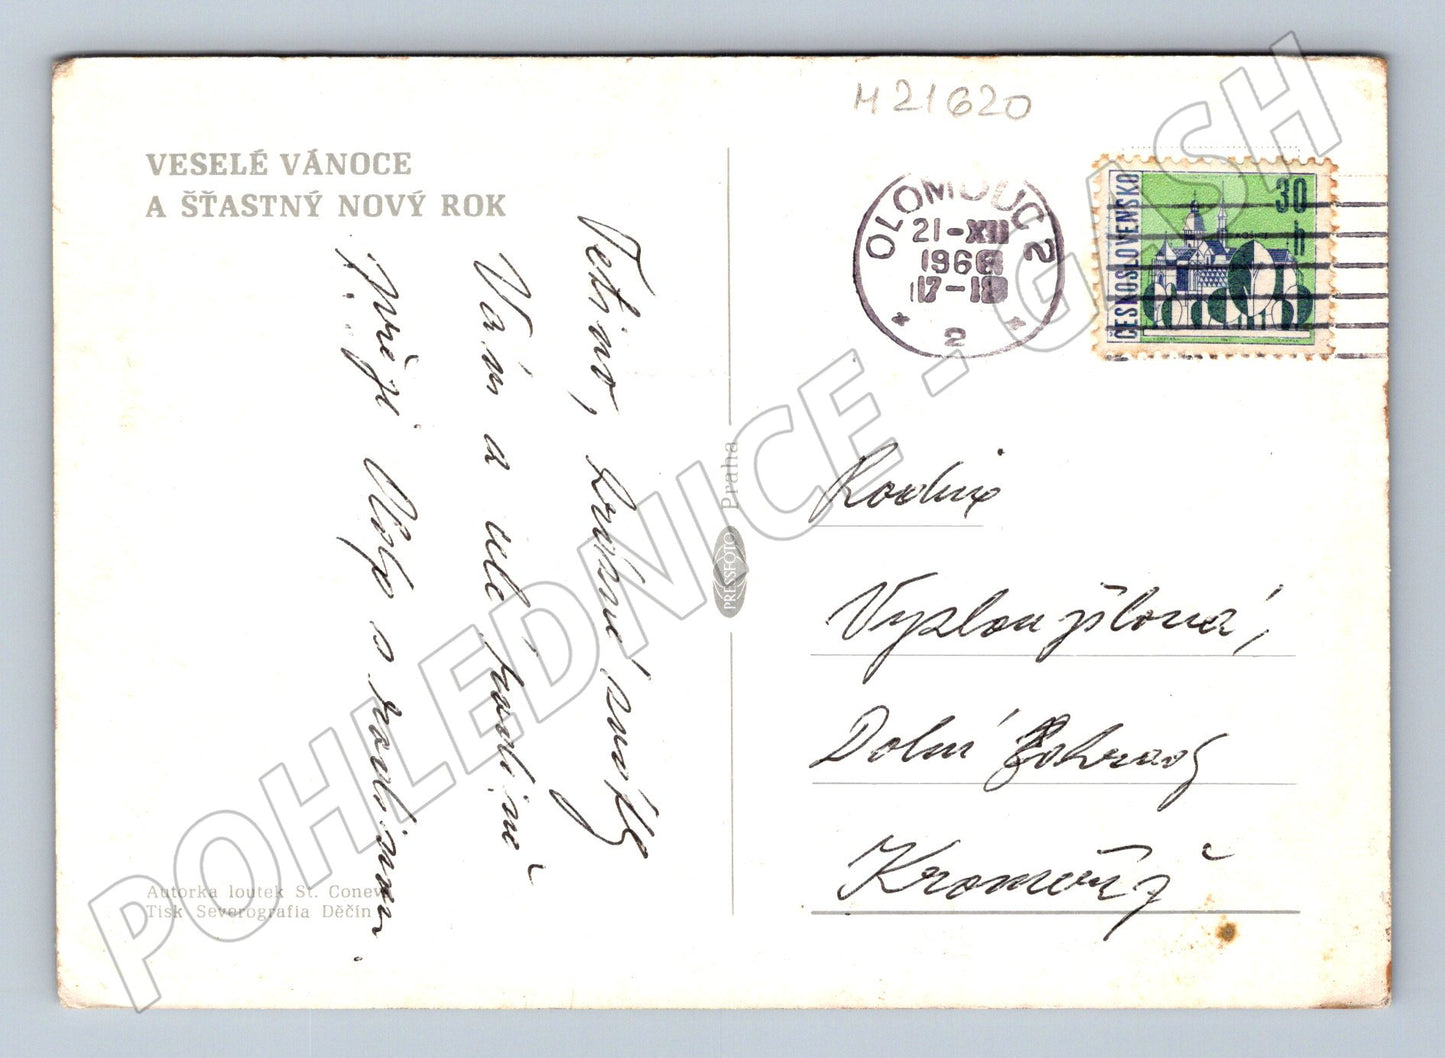 H 21620
VESELÉ VÁNOCE
A ŠŤASTNÝ NOVÝ ROK
Tetino, krásné svátky
Vám a celé rodině
přeje Víťa s rodinou.
Autorka loutek St. Coneva
Tisk Severografia Děčín
Praha
PRESSFOTO
OLOMOUC 2
21-XII
1966
17-18
* 2 *
ČESKOSLOVENSKO
30
h
Rodina
Vyzloužilová,
Dolní Zahrady
Kroměříž
POHLEDNICE - GASH